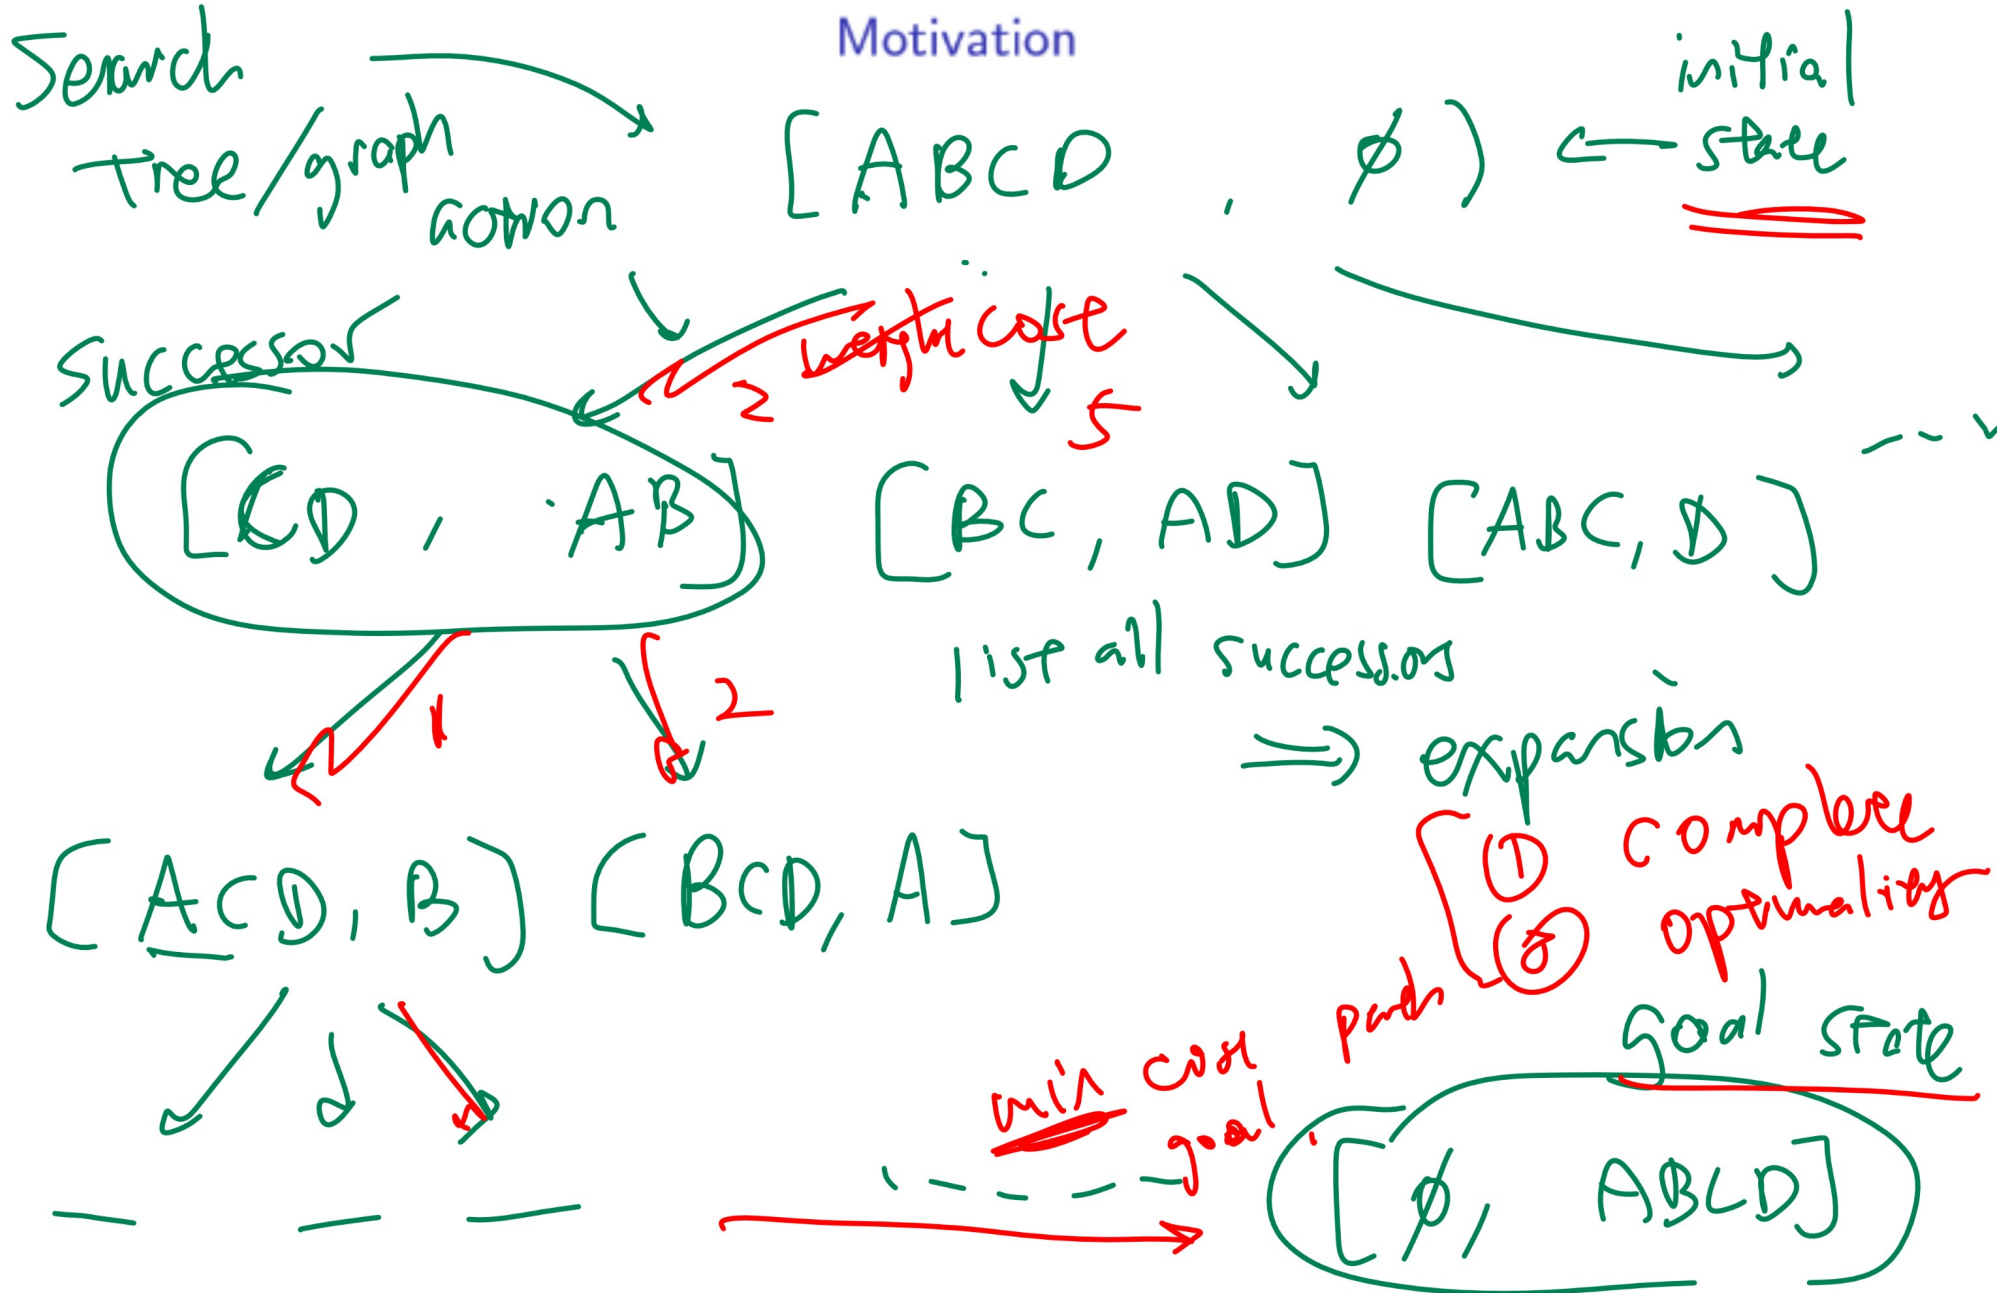 Motivation
Search
Tree/graph
action
[ABCD , ∅)
←
initial
state
successor
weight cost
2
5
[CD, AB]
[BC, AD]
[ABC, D]
list all successors
⇒ expansion
1
2
[ACD, B)
[BCD, A]
① complete
② optimality
min cost path
goal
goal state
[∅, ABCD]